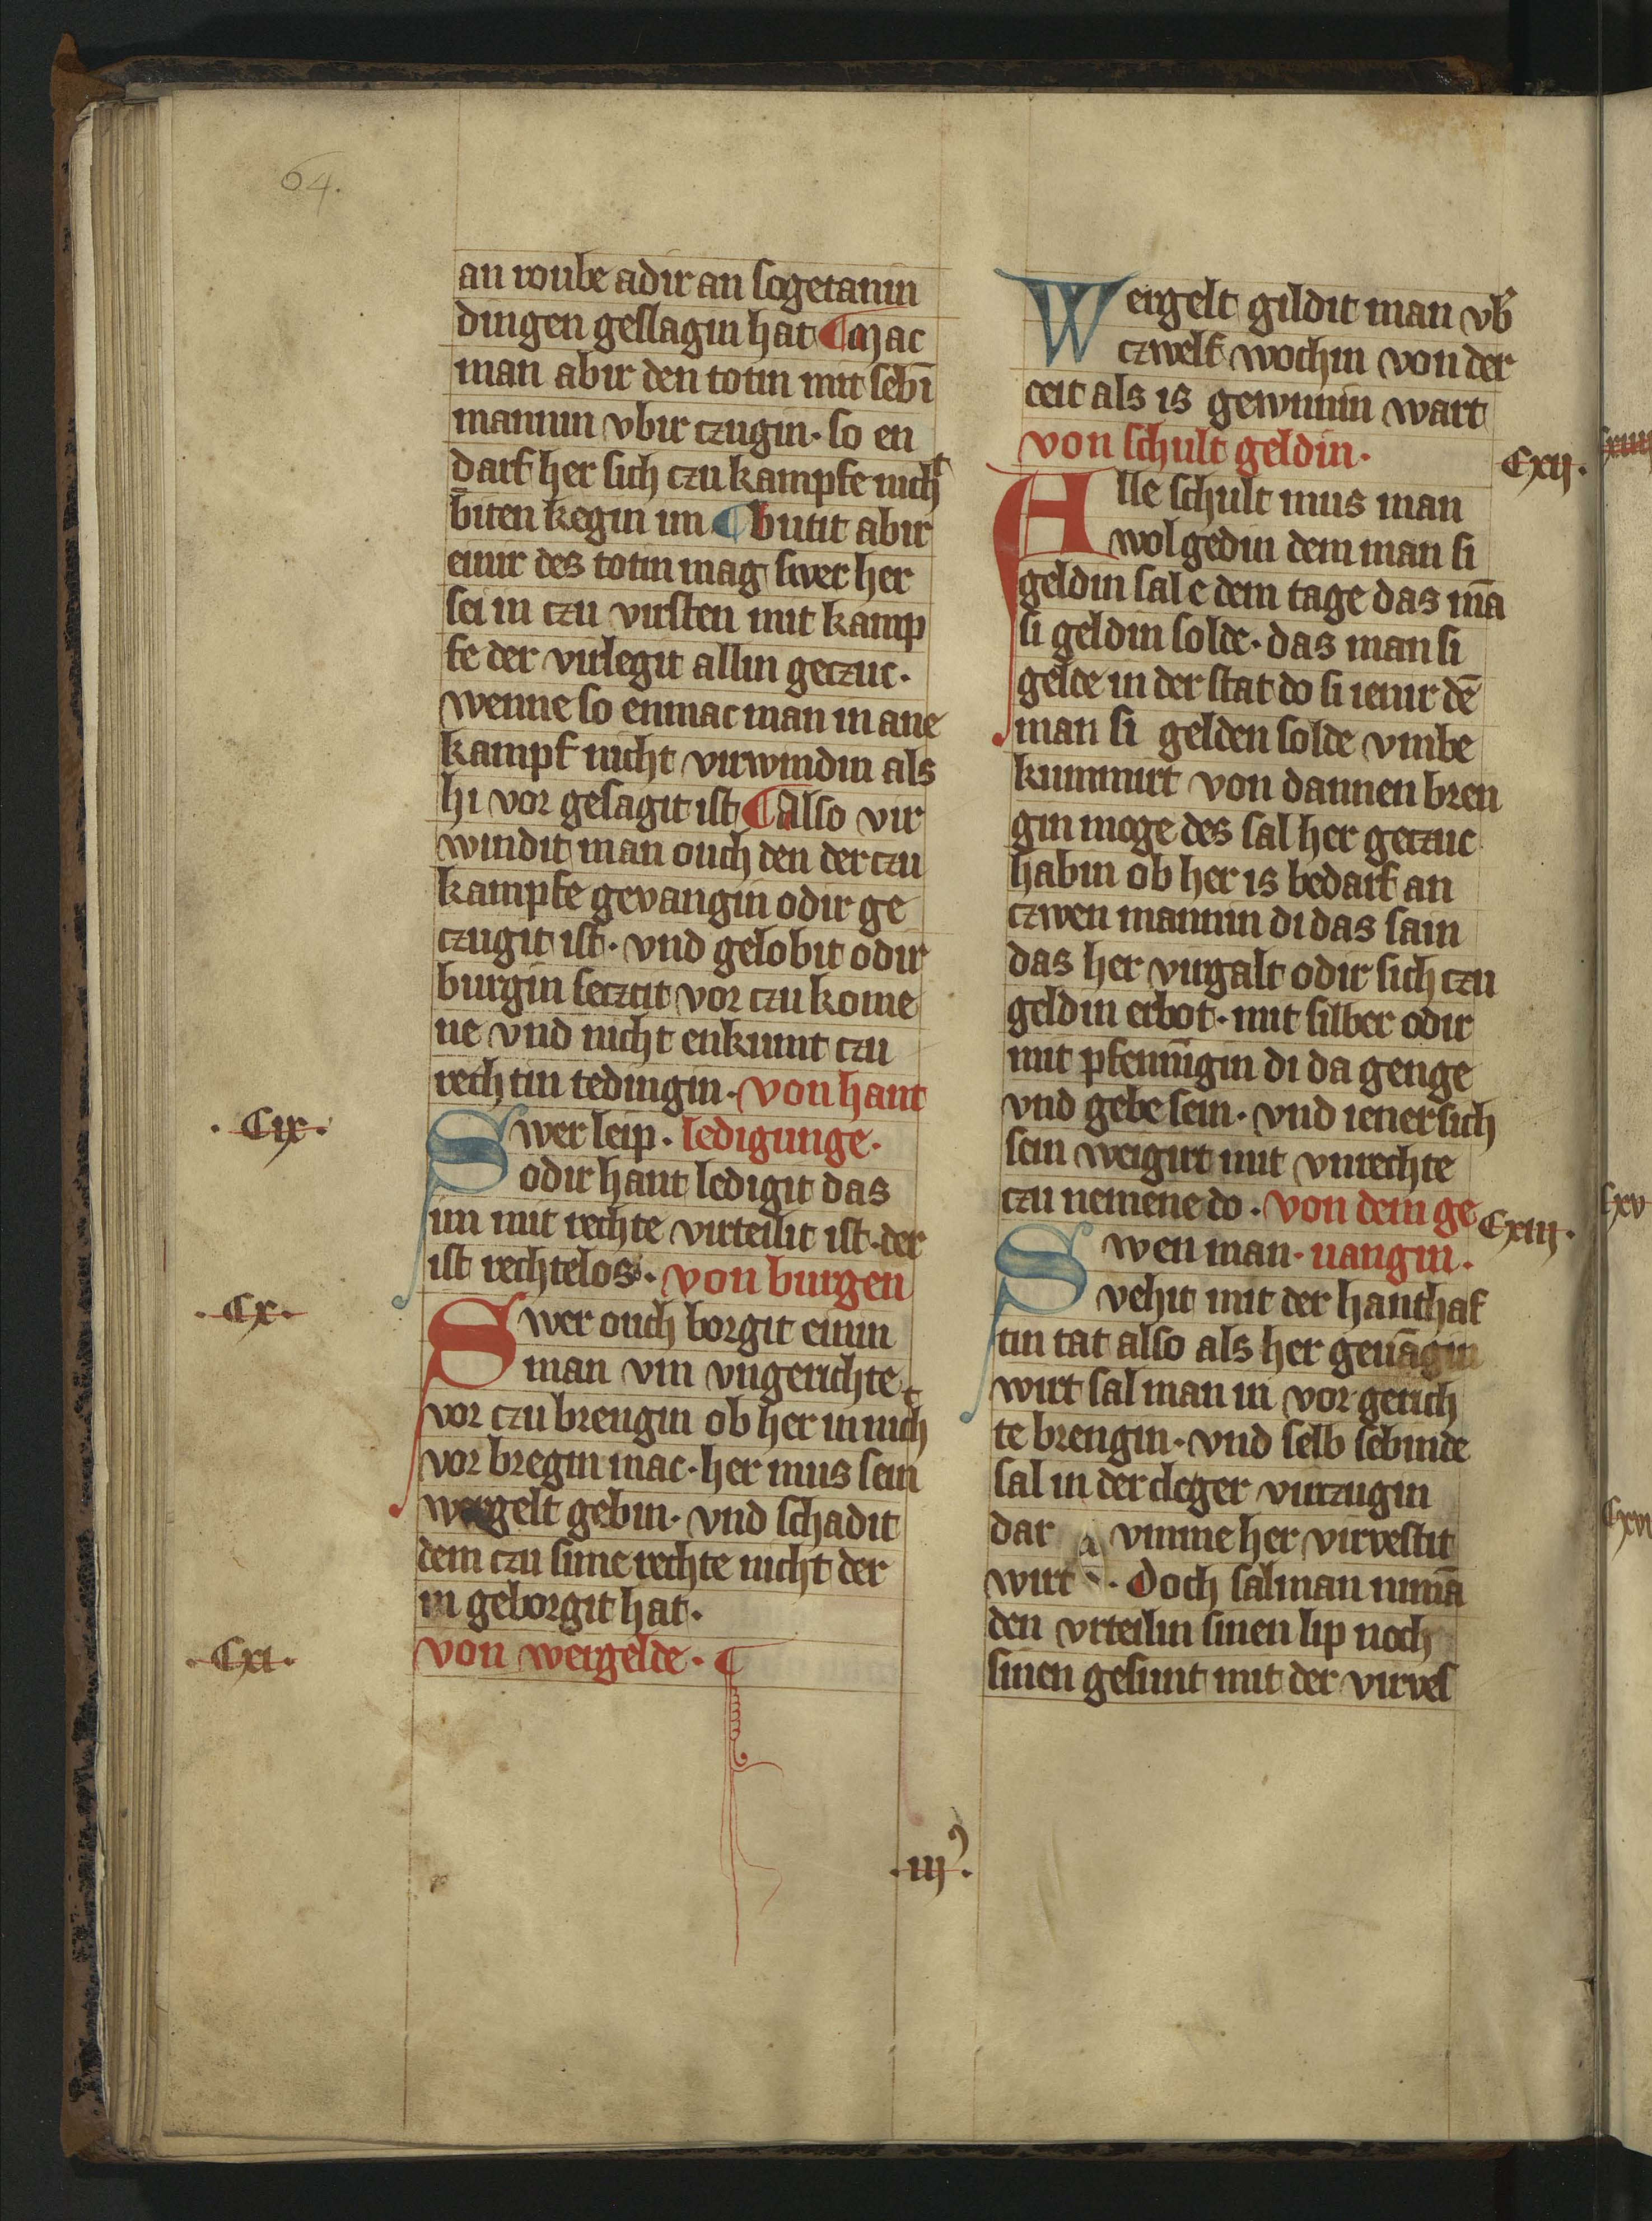 64.
an roube adir an sogetanin
dingen geslagin hat ¶ Mac
man abir den totin mit sebī
mannin vbir czugin· so en
darf her sich czu kampfe nicht
biten kegin im ¶ butit abir
einir des totin mag swer her
sei in czu virsten mit kamp
fe der virlegit allin geczuc·
wenne so enmac man in ane
kampf nicht virwindin als
hi vor gesagit ist ¶ Also vir
windit man ouch den der czu
kampfe gevangin odir ge
czugit ist· vnd gelobit odir
burgin seczcit vor czu kome
ne vnd nicht enkumt czu
rechtin tedingin· von hant
·Cix·
Swer leip· ledigunge·
odir hant ledigit das
im mit rechte virteilit ist· der
ist rechtelos· von burgen
·Cx·
Swer ouch borgit einin
man vm vngerichte
vor czu brengin ob her in nicht
vor bregin mac· her mus sein
wergelt gebin· vnd schadit
dem czu sime rechte nicht der
in geborgit hat·
·Cxi·
von wergelde·
·iij·
Wergelt gildit man vb̄
czwelf wochin von der
ceit als is gewunnin wart
von schult geldin·
Cxij·
Alle schult mus man
wol gedin dem man si
geldin sal e dem tage das mā
si geldin solde· das man si
gelde in der stat do si ienir dē
man si gelden solde vmbe
kummirt von dannen bren
gin moge des sal her geczuc
habin ob her is bedarf an
czwen mannin di das sain
das her virgalt odir sich czu
geldin erbot· mit silber odir
mit pfennīgin di da genge
vnd gebe sein· vnd iener sich
sein weigirt mit vnrechte
czu nemene do· von dem ge
Cxiij·
Swen man· uangin·
vehit mit der hanthaf
tin tat also als her geuāgin
wirt sal man in vor gerich
te brengin· vnd selb sebinde
sal in der cleger virczugin
dar vmme her virvestit
wirt · Doch sal man nimā
den vrteilin sinen lip noch
sinen gesunt mit der virves
Cxiiij
Cxv
Cxvi